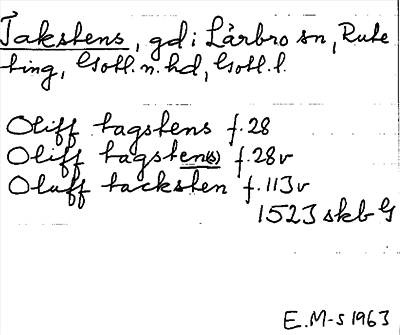 Takstens, gd i Lärbro sn, Rute
ting, Gotl. n. hd, Gotl. l.
Oliff tagstens f. 28
Oliff tagsten(s) f. 28v
Oluff tacksten f. 113v
1523 skb G
E. M-s 1963